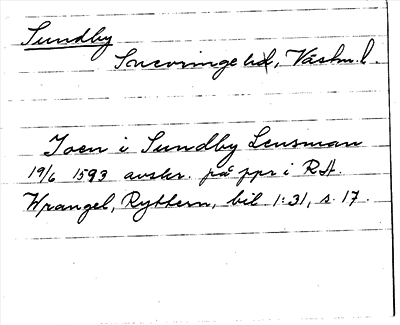 Sundby
Snevringe hd, Västm. l.
Joen i Sundby Lensman
19/6 1593 avskr. på ppr i RA.
Wrangel, Ryttern, bil 1:31, s. 17.